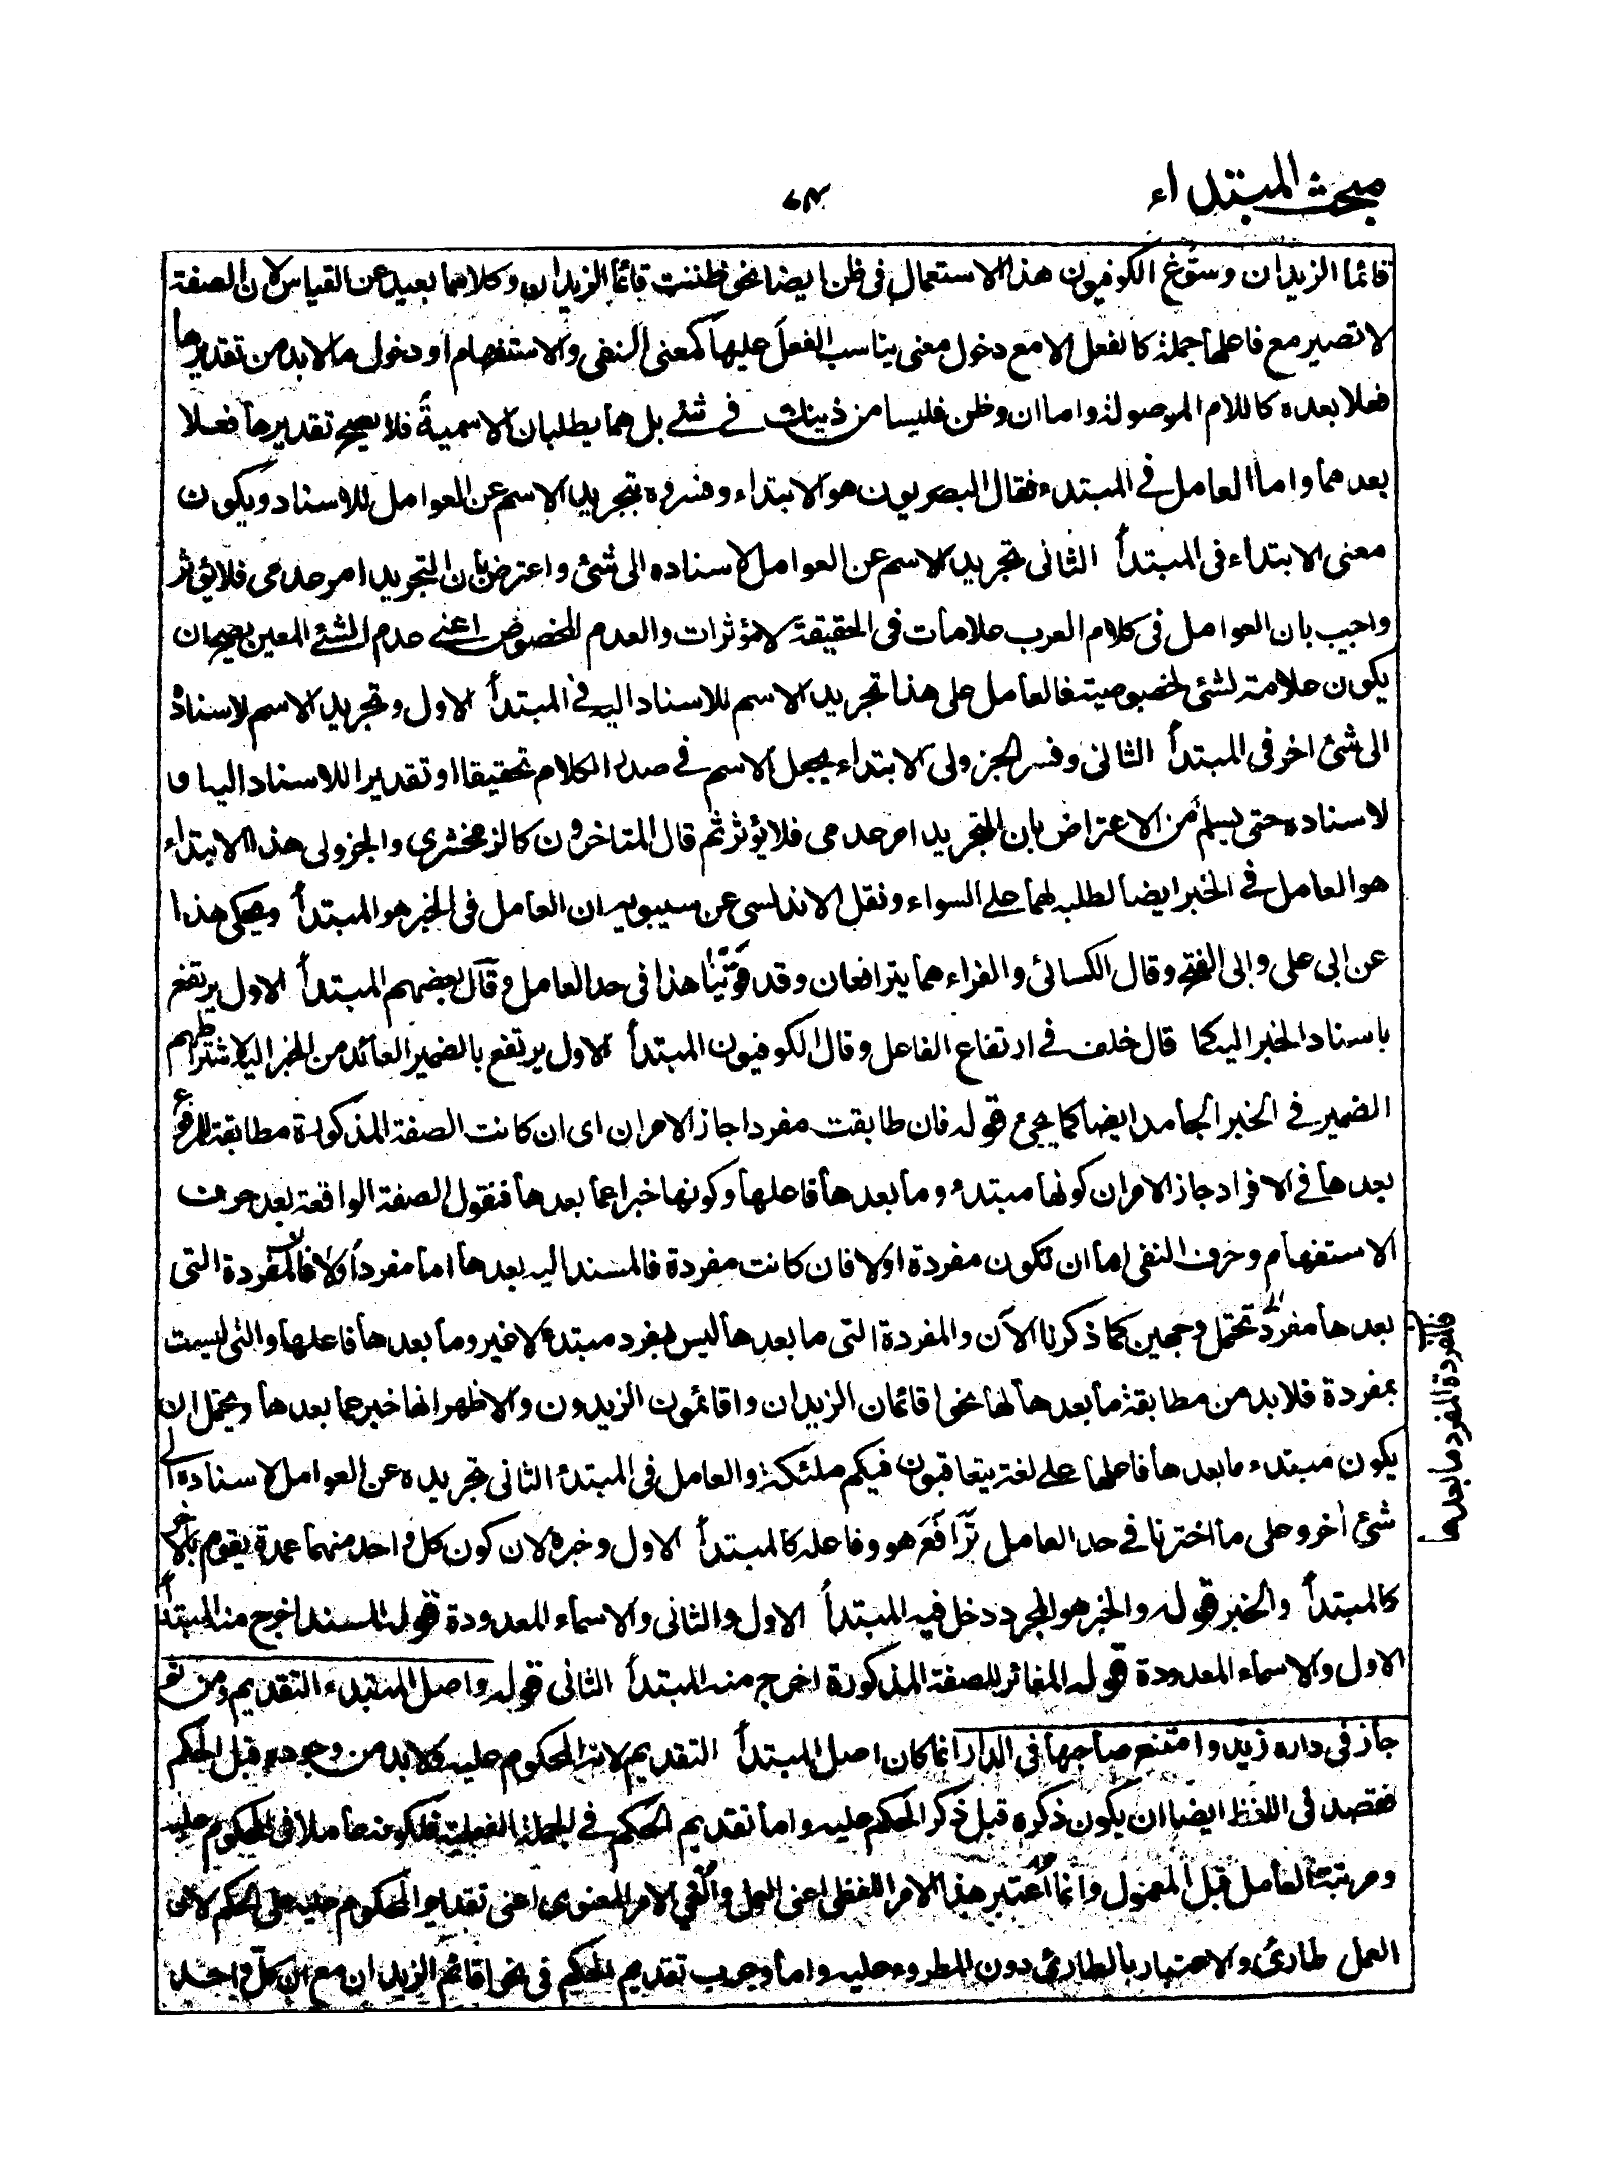 مبحث المبتداء
٧٤
قائما الزيدان وسوّغ الكوفيون هذا الاستعمال فى ظن ايضا نحو ظننت قائما الزيدان وكلاهما بعيد عن القياس لان الصفة
لا تصير مع فاعلها جملة كالفعل الا مع دخول معنى يناسب الفعل عليها كمعنى النفى والاستفهام او دخول ما لا بد من تقديرها
فعلا بعده كاللام الموصولة واما ان وظن فليسا من ذينك فى شئ بل هما يطلبان الاسمية فلا يصح تقديرها فعلا
بعدهما واما العامل فى المبتدء فقال البصريون هو الابتداء وفسروه بتجريد الاسم عن العوامل للاسناد ويكون
معنى الابتداء فى المبتدأ الثانى تجريد الاسم عن العوامل لاسناده الى شئ واعترض بان التجريد امر عدمى فلا يؤثر
واجيب بان العوامل فى كلام العرب علامات فى الحقيقة لا مؤثرات والعدم المخصوص اعنى عدم الشئ المعين يصح ان
يكون علامة لشئ لخصوصيته فالعامل على هذا تجريد الاسم للاسناد اليه فى المبتدأ الاول وتجريد الاسم لاسناده
الى شئ اخر فى المبتدأ الثانى وفسر الجزولى الابتداء بجعل الاسم فى صدر الكلام تحقيقا او تقديرا للاسناد اليه او
لاسناده حتى يسلم من الاعتراض بان التجريد امر عدمى فلا يؤثر ثم قال المتاخرون كالزمخشرى والجزولى هذا الابتداء
هو العامل فى الخبر ايضا لطلبه لهما على السواء ونقل الاندلسى عن سيبويه ان العامل فى الخبر هو المبتدأ ويحكى هذا
عن ابى على وابى الفتح وقال الكسائى والفراء هما يترافعان وقد قوّينا هذا فى حد العامل وقال بعضهم المبتدأ الاول يرتفع
باسناد الخبر اليه كما قال خلف فى ارتفاع الفاعل وقال الكوفيون المبتدأ الاول يرتفع بالضمير العائد من الخبر اليه لاشتراطهم
الضمير فى الخبر الجامد ايضا كما يجئ قوله فان طابقت مفردا جاز الامران اى ان كانت الصفة المذكورة مطابقة للمرفوع
بعدها فى الافراد جاز الامران كونها مبتدء وما بعدها فاعلها وكونها خبرا عما بعدها فنقول الصفة الواقعة بعد حرف
الاستفهام وحرف النفى اما ان تكون مفردة اولا فان كانت مفردة فالمسند اليه بعدها اما مفردا اولا فالمفردة التى
بعدها مفرد تحتمل وجهين كما ذكرنا الآن والمفردة التى ما بعدها ليس بمفرد مبتدء لا غير وما بعدها فاعلها والتى ليست
بمفردة فلا بد من مطابقة ما بعدها لها نحو اقائمان الزيدان واقائمون الزيدون والاظهر انها خبر عما بعدها ويحتمل ان
يكون مبتدء ما بعدها فاعلها على لغة يتعاقبون فيكم ملئكة والعامل فى المبتدء الثانى تجريده عن العوامل لاسناده الى
شئ اخر وعلى ما اخترنا فى حد العامل ترافع هو وفاعله كالمبتدأ الاول وخبره لان كون كل واحد منهما عمدة يقوم بالاخر
كالمبتدأ والخبر قوله والخبر هو المجرد دخل فيه المبتدأ الاول والثانى والاسماء المعدودة قوله المسند اخرج منه المبتدأ
الاول والاسماء المعدودة قوله المغائر للصفة المذكورة اخرج منه المبتدأ الثانى قوله واصل المبتدء التقديم ومن ثم
جاز فى داره زيد وامتنع صاحبها فى الدار انما كان اصل المبتدأ التقديم لانه المحكوم عليه ولا بد من وجوده قبل الحكم
فقصد فى اللفظ ايضا ان يكون ذكره قبل ذكر الحكم عليه واما تقديم الحكم فى الجملة الفعلية فلكونه عاملا فى المحكوم عليه
ومرتبة العامل قبل المعمول وانما اعتبر هذا الامر اللفظى اعنى العمل والغى الامر المعنوى اعنى تقديم المحكوم عليه على الحكم لان
العمل طارئ والاعتبار بالطارئ دون المطروء عليه واما وجوب تقديم الحكم فى نحو اقائم الزيدان مع ان كل واحد
فالمفردة المفرد ما بعدها